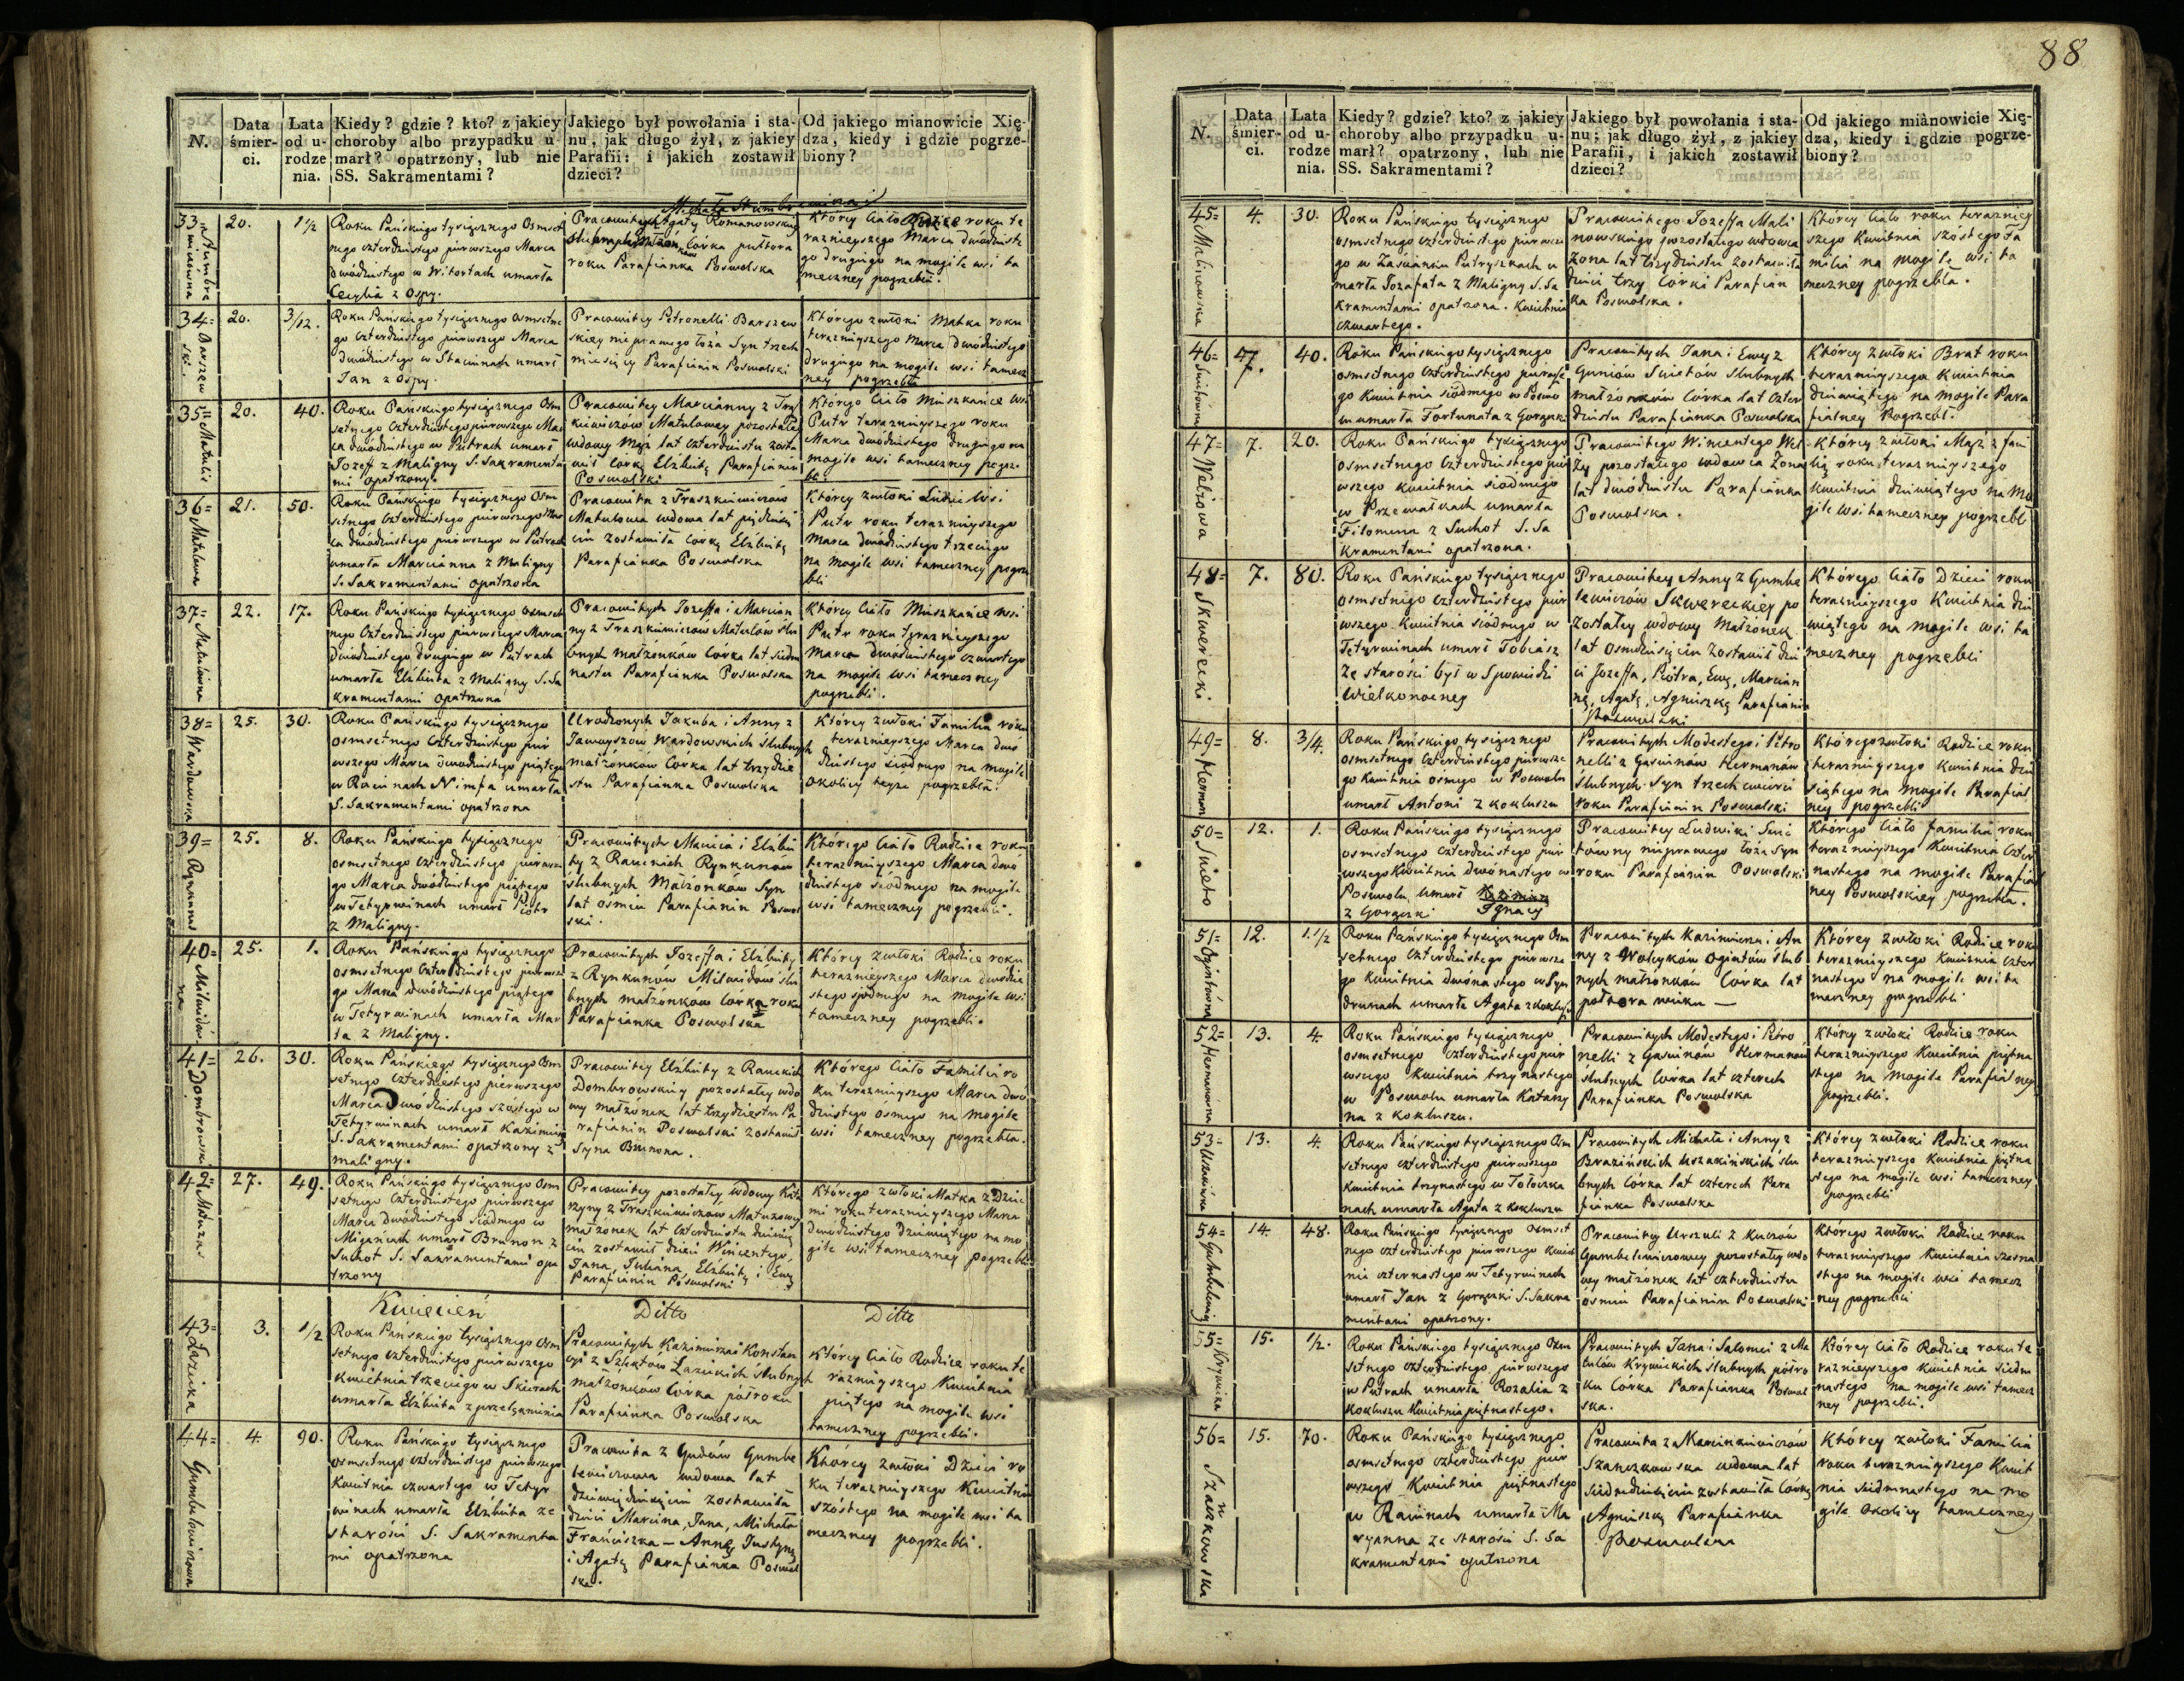 88
N.
Data śmierci.
Lata od urodzenia.
Kiedy? gdzie? kto? z jakiey
choroby albo przypadku u-
marł? opatrzony, lub nie
SS. Sakramentami?
Jakiego był powołania i sta-
nu, jak długo żył, z jakiey
Parafii: i jakich zostawił
dzieci?
Od jakiego mianowicie Xię-
dza, kiedy i gdzie pogrze-
biony?
33=
20.
1 1/2
Roku Pańskiego tysiącznego Osmset
nego czterdziestego pierwszego Marca
dwódziestego w Witortach umarła
Cecylia z Ospy.
Michała Stumbrewicza i
Pracowitych Agaty Romanowskiey
Córka puttora
roku Parafianka Poswolska
Którey Ciało Rodzice roku te
raznieyszego Marca dwódzieste
go drugiego na mogile wsi ta
meczney pogrzebli.
34= Barszewski.
20.
3/12.
Roku Pańskiego tysiącznego Osmsetne
go czterdziestego pierwszego Marca
dwódziestego w Staciunach umarł
Jan z Ospy.
Pracowitey Petronelli Barszew
skiey nieprawego łoża Syn trzech
miesięcy Parafianin Poswolski
Którego zwłoki Matka roku
teraznieyszego Marca dwódziestego
drugiego na mogile wsi tamecz
ney pogrzebła
35= Matulis
20.
40.
Roku Pańskiego tysiącznego Osm
setnego czterdziestego pierwszego Mar
ca dwódziestego w Putrach umarł
Jozeff z Maligny S. Sakramenta
mi opatrzony.
Pracowitey Marcianny z Tra
kiewiczow Matulowey pozostałey
wdowy Mąż lat czterdziestu zosta
wił Córkę Elżbietę Parafianin
Poswolski
Którego Ciało Mieszkańce wsi
Putr teraznieyszego roku
Marca dwódziestego drugiego na
mogile wsi tameczney pogrze
bli.
36= Matulowa
21.
50.
Roku Pańskiego tysiącznego Osm
setnego czterdziestego pierwszego Mar
ca dwódziestego pierwszego w Putrach
umarła Marcianna z Maligny
S. Sakramentami opatrzona
Pracowita z Traszkiewiczow
Matulowa wdowa lat piędziesię
ciu zostawiła Córkę Elżbietę
Parafianka Poswolska
Którey zwłoki Ludzie Wsi
Putr roku teraznieyszego
Marca dwódziestego trzeciego
na mogile wsi tameczney pogrze
bli
37= Matulówna
22.
17.
Roku Pańskiego tysiącznego Osmset
nego Czterdziestego pierwszego Marca
dwódziestego drugiego w Putrach
umarła Elżbieta z Maligny S. Sa
kramentami opatrzona
Pracowitych Jozeffa i Marcian
ny z Traszkiewiczów Matulow ślu
bnych małżonkow Córka lat siedm
nastu Parafianka Poswolska
Którey Ciało Mieszkańce wsi
Putr roku teraznieyszego
Marca dwódziestego czwartego
na mogile wsi tameczney
pogrzebli.
38= Wardowska
25.
30.
Roku Pańskiego tysiącznego
osmsetnego Czterdziestego pier
wszego Marca dwodziestego piątego
w Raciunach Nimfa umarła
S. Sakramentami opatrzona
Urodzonych Jakuba i Anny z
Jawoyszow Wardowskich ślubnych
małżonków Córka lat trzydzie
stu Parafianka Poswolska
Którey zwłoki Familia roku
teraznieyszego Marca dwó
dziestego siódmego na mogile
okolicy teyże pogrzebła.
39= Rynkunas
25.
8.
Roku Pańskiego tysiącznego
osmsetnego Czterdziestego pierwsze
go Marca dwódziestego piątego
w Tetyrwinach umarł Piotr
z Maligny.
Pracowitych Macieia i Elżbie
ty z Raceniow Rynkunów
ślubnych Małżonków Syn
lat osmiu Parafianin Poswol
ski.
Którego Ciało Rodzice roku
teraznieyszego Marca dwó
dziestego siódmego na mogile
wsi tameczney pogrzebli.
40= Milwidówna
25.
1.
Roku Pańskiego tysiącznego
osmsetnego Czterdziestego pierwsze
go Marca dwódziestego piątego
w Tetyrwinach umarła Mar
ta z Maligny.
Pracowitych Jozeffa i Elżbiety
z Rynkunów Milwidow ślu
bnych małżonkow Córka roku
Parafianka Poswolska
Którey zwłoki Rodzice roku
teraznieyszego Marca dwódzie
stego siódmego na mogile wsi
tameczney pogrzebli.
41= Dombrowski
26.
30.
Roku Pańskiego tysiącznego Osm
setnego czterdziestego pierwszego
Marca Dwódziestego szóstego w
Tetyrwinach umarł Kazimierz
S. Sakramentami opatrzony z
maligny.
Pracowitey Elżbiety z Rauckich
Dombrowskiey pozostałey wdo
wy małżonek lat trzydziestu Pa
rafianin Poswolski zostawił
Syna Brunona.
Którego Ciało Familia ro
ku teraznieyszego Marca dwó
dziestego ósmego na mogile
wsi tameczney pogrzebła.
42= Matuzas
27.
49.
Roku Pańskiego tysiącznego Osm
setnego Czterdziestego pierwszego
Marca dwódziestego siódmego w
Miganiach umarł Brunon z
Suchot S. Sakramentami opa
trzony
Pracowitey pozostałey wdowy Kata
rzyny z Traszkiewiczow Matuzowey
małżonek lat Czterdziestu dziewię
ciu zostawił dzieci Wincentego,
Jana, Juliana, Elżbietę i Ewę
Parafianin Poswolski
Którego zwłoki Matka z Dzieć
mi roku teraznieyszego Marca
dwódziestego dziewiątego na mo
gile wsi tameczney pogrzebli
Kwiecień
Ditto
Ditto
43= Łazicka
3.
1/2
Roku Pańskiego tysiącznego Osm
setnego czterdziestego pierwszego
Kwietnia trzeciego w Skierach
umarła Elżbieta z przelęknienia
Pracowitych Kazimierza i Konstan
cyi z Szlatów Łazickich ślubnych
małżonków Córka półroku
Parafianka Poswolska
Którey Ciało Rodzice roku te
raznieyszego Kwietnia
piątego na mogile wsi
tameczney pogrzebli.
44= Gumbelewiczowa
4.
90.
Roku Pańskiego tysiącznego
osmsetnego czterdziestego pierwszego
Kwietnia czwartego w Tetyr
winach umarła Elżbieta ze
starości S. Sakramenta
mi opatrzona
Pracowita z Gudów Gumbe
lewiczowa wdowa lat
dziewiędziesięciu zostawiła
dzieci Marcina, Jana, Michała
Franciszka – Annę, Justynę
i Agatę Parafianka Poswol
ska.
Którey zwłoki Dzieci ro
ku teraznieyszego Kwietnia
szóstego na mogile wsi ta
meczney pogrzebli.
N.
Data śmierci.
Lata od urodzenia.
Kiedy? gdzie? kto? z jakiey
choroby albo przypadku u-
marł? opatrzony, lub nie
SS. Sakramentami?
Jakiego był powołania i sta-
nu; jak długo żył, z jakiey
Parafii, i jakich zostawił
dzieci?
Od jakiego miànowicie Xię-
dza, kiedy i gdzie pogrze-
biony?
45= Malinowska
4.
30.
Roku Pańskiego tysiącznego
osmsetnego czterdziestego pierwsze
go w Zaścianku Putryszkach u
marła Jozafata z Maligny S. Sa
kramentami opatrzona. Kwietnia
czwartego.
Pracowitego Jozeffa Mali
nowskiego pozostałego wdowca
żona lat trzydziestu zostawiła
dzieci trzy Córki Parafian
ka Poswolska.
Którey Ciało roku terazniey
szego Kwietnia szóstego Fa
milia na mogile wsi ta
meczney pogrzebła.
46= Swietówna
7.
40.
Roku Pańskiego tysiącznego
osmsetnego Czterdziestego pierwsze
go Kwietnia siódmego w Poswo
lu umarła Fortunata z Gorączki
Pracowitych Jana i Ewy z
Guniów Swietów ślubnych
małżonków Córka lat Czter
dziestu Parafianka Poswolska
Którey zwłoki Brat roku
teraznieyszego Kwietnia
dziewiątego na mogile Para
fialney Pogrzebł.
47= Welzowa
7.
20.
Roku Pańskiego tysiącznego
osmsetnego Czterdziestego pier
wszego kwietnia siódmego
w Przewałkach umarła
Filomena z Suchot S. Sa
kramentami opatrzona.
Pracowitego Wincentego Wel
zy pozostałego wdowca Żona
lat dwódziestu Parafianka
Poswolska.
Którey zwłoki Mąż z fami
lią roku teraznieyszego
kwietnia dziewiątego na mo
gile wsi tameczney pogrzebli
48= Skwerecki.
7.
80.
Roku Pańskiego tysiącznego
osmsetnego Czterdziestego pier
wszego Kwietnia siódmego w
Tetyrwinach umarł Tobiasz
ze starości był w Spowiedzi
Wielkonocney
Pracowitey Anny z Gumbe
lewiczów Skwereckiey po
zostałey wdowy Małżonek
lat osmdziesięciu zostawił dzie
ci Jozeffa, Piotra, Ewę, Marcian
nę, Agatę, Agnieszkę Parafianin
Poswolski
Którego Ciało Dzieci roku
teraznieyszego Kwietnia dzie
wiątego na mogile wsi ta
meczney pogrzebli
49= Herman
8.
3/4.
Roku Pańskiego tysiącznego
osmsetnego Czterdziestego pierwsze
go Kwietnia osmego w Poswolu
umarł Antoni z kokluszu
Pracowitych Modestego i Petro
nelli z Gasiunów Hermanów
ślubnych Syn trzech ćwierci
roku Parafianin Poswolski
Którego zwłoki Rodzice roku
teraznieyszego Kwietnia dzie
siątego na mogile Parafial
ney pogrzebli
50= Swieto
12.
1.
Roku Pańskiego tysiącznego
osmsetnego czterdziestego pier
wszego Kwietnia dwónastego w
Poswolu umarł
z Gorączki Ignacy
Pracowitey Ludwiki Swie
tówny nieprawego łoża Syn
roku Parafianin Poswolski
Którego Ciało familia roku
teraznieyszego Kwietnia Czter
nastego na mogile Parafial
ney Poswolskiey pogrzebła.
51= Ogintówna
12.
1.1/2
Roku Pańskiego tysiącznego Osm
setnego Czterdziestego pierwsze
go Kwietnia dwónastego w Syn
drunach umarła Agata z kokluszu
Pracowitych Kazimierza i An
ny z Wołcyków Ogintów ślub
nych małżonków Córka lat
półtora wieku —
Którey zwłoki Rodzice roku
teraznieyszego Kwietnia Czter
nastego na mogile wsi ta
meczney pogrzebli
52= Hermanówna
13.
4.
Roku Pańskiego tysiącznego
osmsetnego czterdziestego pier
wszego Kwietnia trzynastego
w Poswolu umarła Katarzy
na z kokluszu.
Pracowitych Modestego i Petro
nelli z Gasiunów Hermanów
ślubnych Córka lat czterech
Parafianka Poswolska
Którey zwłoki Rodzice roku
teraznieyszego Kwietnia piętna
stego na mogile Parafialney
pogrzebli.
53=
13.
4.
Roku Pańskiego tysiącznego Osm
setnego czterdziestego pierwszego
Kwietnia trzynastego w Tołoczka
nach umarła Agata z kokluszu
Pracowitych Michała i Anny z
Brazińskich Uszakińskich ślu
bnych Córka lat czterech Para
fianka Poswolska
Którey zwłoki Rodzice roku
teraznieyszego Kwietnia piętna
stego na mogile wsi tameczney
pogrzebli
54=
14.
48.
Roku Pańskiego tysiącznego osmset
nego czterdziestego pierwszego Kwiet
nia czternastego w Tetyrwinach
umarł Jan z Gorączki S. Sakra
mentami opatrzony.
Pracowitey Urszuli z Kuczów
Gumbelewiczowey pozostałey wdo
wy małżonek lat czterdziestu
ósmiu Parafianin Poswolski
Którego zwłoki Rodzice roku
teraznieyszego Kwietnia szesna
stego na mogile wsi tamecz
ney pogrzebli
55= Krywicka
15.
1/2.
Roku Pańskiego tysiącznego Osm
setnego czterdziestego pierwszego
w Putrach umarła Rozalia z
kokluszu Kwietnia piętnastego.
Pracowitych Jana i Salomei z Ma
tulów Krywickich ślubnych półro
ku Córka Parafianka Poswol
ska.
Którey Ciało Rodzice roku te
raznieyszego Kwietnia siedm
nastego na mogile wsi tamecz
ney pogrzebli.
56= Szanczkowska
15.
70.
Roku Pańskiego tysiącznego
osmsetnego czterdziestego pier
wszego Kwietnia piętnastego
w Raciunach umarła Ma
ryanna ze starości S. Sa
kramentami opatrzona
Pracowita z Marcinkiewiczów
Szanczkowska wdowa lat
siedmdziesięciu zostawiła Córkę
Agnieszkę Parafianka
Poswolska
Którey zwłoki Familia
roku teraznieyszego Kwiet
nia siedmnastego na mo
gile Okolicy tameczney